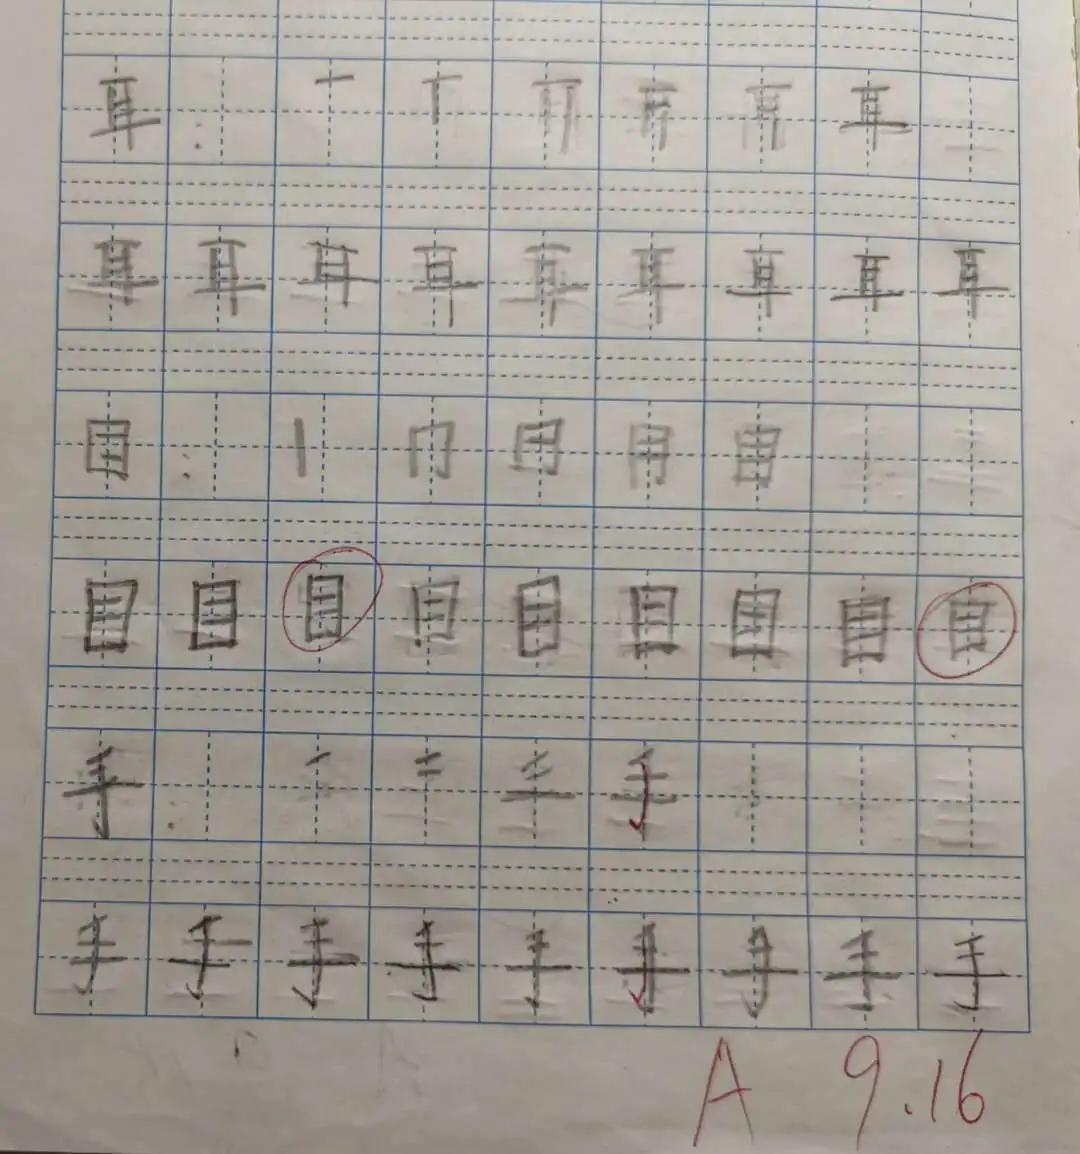 耳 : 一 丅 耳
耳 耳 耳 耳 耳 耳 耳 耳 耳
目 : 丨 冂 目
目 目 目 目 目 目 目 目 目
手 : 手
手 手 手 手 手 手 手 手 手
A 9.16